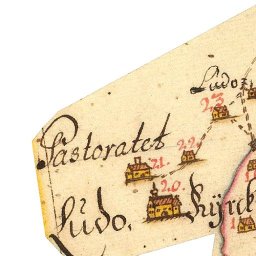 Ludo
23
Pastoratet
21. 22
20.
Ludo. Kÿrck